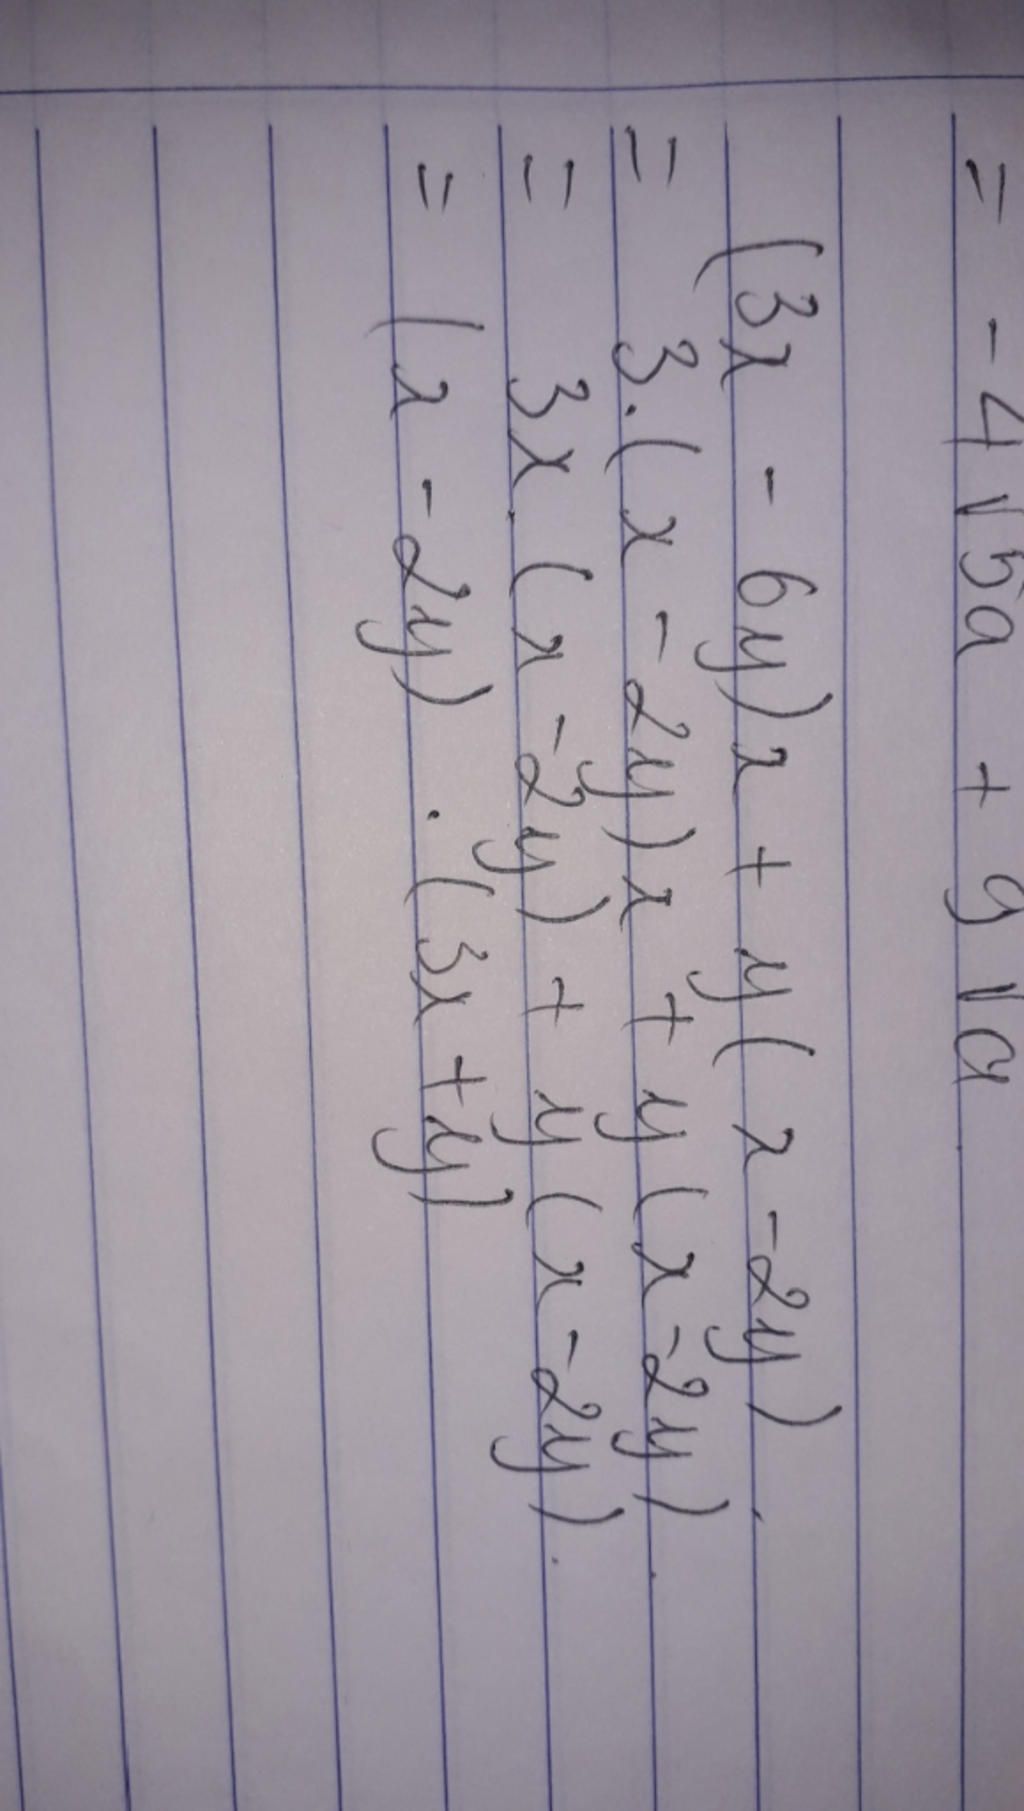 = - 4√5a + 9√a
(3x - 6y)x + y(x - 2y).
= 3.(x - 2y)x + y(x - 2y).
= 3x.(x - 2y) + y(x - 2y).
= (x - 2y) . (3x + y)